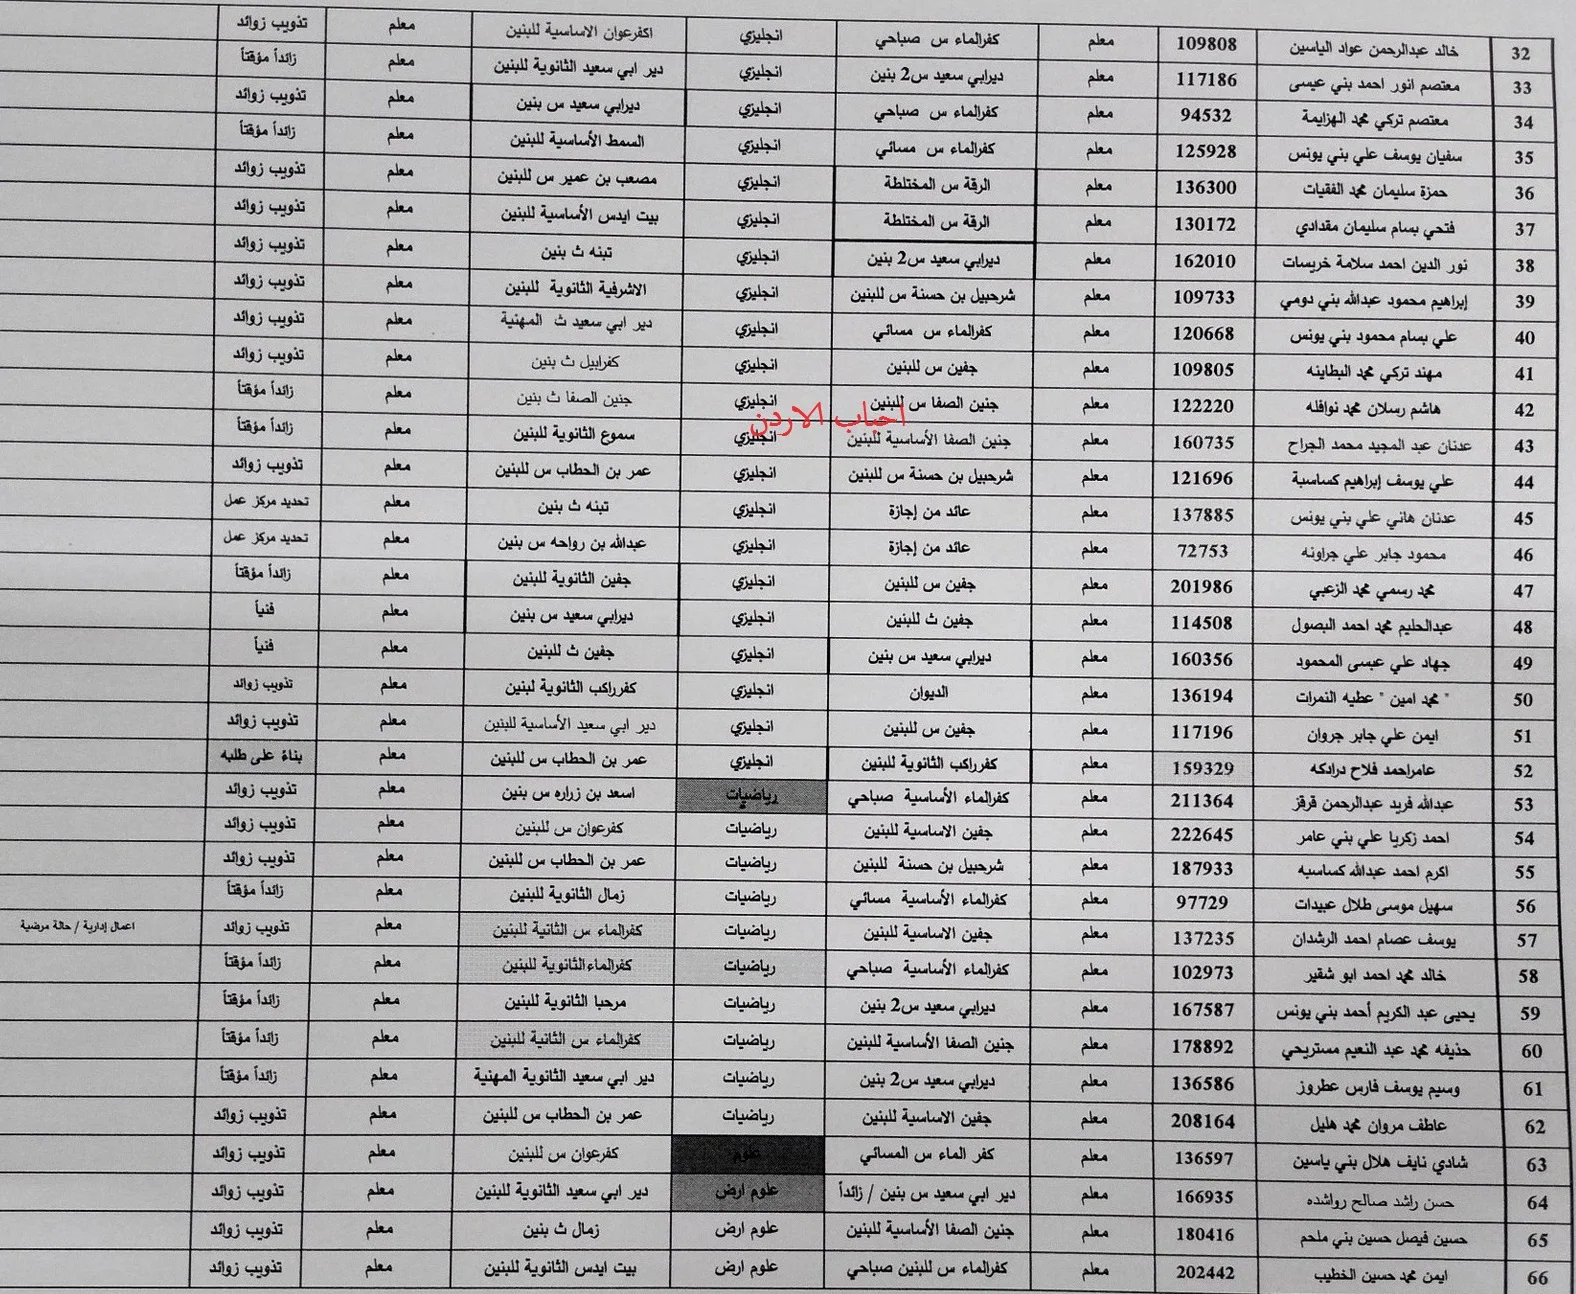 32 خالد عبدالرحمن عواد الياسين 109808 معلم كفرالماء س صباحي انجليزي اكفرعوان الاساسية للبنين معلم تذويب زوائد
33 معتصم انور احمد بني عيسى 117186 معلم ديرابي سعيد س2 بنين انجليزي دير ابي سعيد الثانوية للبنين معلم زائداً مؤقتاً
34 معتصم تركي محمد الهزايمة 94532 معلم كفرالماء س صباحي انجليزي ديرابي سعيد س بنين معلم تذويب زوائد
35 سفيان يوسف علي بني يونس 125928 معلم كفرالماء س مسائي انجليزي السمط الأساسية للبنين معلم زائداً مؤقتاً
36 حمزة سليمان محمد الفقيات 136300 معلم الرقة س المختلطة انجليزي مصعب بن عمير س للبنين معلم تذويب زوائد
37 فتحي بسام سليمان مقدادي 130172 معلم الرقة س المختلطة انجليزي بيت ايدس الأساسية للبنين معلم تذويب زوائد
38 نور الدين احمد سلامة خريسات 162010 معلم ديرابي سعيد س2 بنين انجليزي تبنه ث بنين معلم تذويب زوائد
39 إبراهيم محمود عبدالله بني دومي 109733 معلم شرحبيل بن حسنة س للبنين انجليزي الاشرفية الثانوية للبنين معلم تذويب زوائد
40 علي بسام محمود بني يونس 120668 معلم كفرالماء س مسائي انجليزي دير ابي سعيد ث المهنية معلم تذويب زوائد
41 مهند تركي محمد البطاينه 109805 معلم جفين س للبنين انجليزي كفرابيل ث بنين معلم تذويب زوائد
42 هاشم رسلان محمد نوافله 122220 معلم جنين الصفا س للبنين انجليزي جنين الصفا ث بنين معلم زائداً مؤقتاً
احباب الاردن
43 عدنان عبد المجيد محمد الجراح 160735 معلم جنين الصفا الأساسية للبنين انجليزي سموع الثانوية للبنين معلم زائداً مؤقتاً
44 علي يوسف إبراهيم كساسبة 121696 معلم شرحبيل بن حسنة س للبنين انجليزي عمر بن الحطاب س للبنين معلم تذويب زوائد
45 عدنان هاني علي بني يونس 137885 معلم عائد من إجازة انجليزي تبنه ث بنين معلم تحديد مركز عمل
46 محمود جابر علي جراونه 72753 معلم عائد من إجازة انجليزي عبدالله بن رواحه س بنين معلم تحديد مركز عمل
47 محمد رسمي محمد الزعبي 201986 معلم جفين س للبنين انجليزي جفين الثانوية للبنين معلم زائداً مؤقتاً
48 عبدالحليم محمد احمد البصول 114508 معلم جفين ث للبنين انجليزي ديرابي سعيد س بنين معلم فنياً
49 جهاد علي عيسى المحمود 160356 معلم ديرابي سعيد س بنين انجليزي جفين ث للبنين معلم فنياً
50 " محمد امين " عطيه النمرات 136194 معلم الديوان انجليزي كفرراكب الثانوية لبنين معلم تذويب زوائد
51 ايمن علي جابر جروان 117196 معلم جفين س للبنين انجليزي دير ابي سعيد الأساسية للبنين معلم تذويب زوائد
52 عامراحمد فلاح درادكه 159329 معلم كفرراكب الثانوية للبنين انجليزي عمر بن الحطاب س للبنين معلم بناءً على طلبه
53 عبدالله فريد عبدالرحمن قرقز 211364 معلم كفرالماء الأساسية صباحي رياضيات اسعد بن زراره س بنين معلم تذويب زوائد
54 احمد زكريا علي بني عامر 222645 معلم جفين الاساسية للبنين رياضيات كفرعوان س للبنين معلم تذويب زوائد
55 اكرم احمد عبدالله كساسبه 187933 معلم شرحبيل بن حسنة للبنين رياضيات عمر بن الحطاب س للبنين معلم تذويب زوائد
56 سهيل موسى طلال عبيدات 97729 معلم كفرالماء الأساسية مسائي رياضيات زمال الثانوية للبنين معلم زائداً مؤقتاً
57 يوسف عصام احمد الرشدان 137235 معلم جفين الاساسية للبنين رياضيات كفرالماء س الثانية للبنين معلم تذويب زوائد اعمال إدارية / حالة مرضية
58 خالد محمد احمد ابو شقير 102973 معلم كفرالماء الأساسية صباحي رياضيات كفرالماء الثانوية للبنين معلم زائداً مؤقتاً
59 يحيى عبد الكريم أحمد بني يونس 167587 معلم ديرابي سعيد س2 بنين رياضيات مرحبا الثانوية للبنين معلم زائداً مؤقتاً
60 حذيفه محمد عبد النعيم مستريحي 178892 معلم جنين الصفا الأساسية للبنين رياضيات كفرالماء س الثانية للبنين معلم زائداً مؤقتاً
61 وسيم يوسف فارس عطروز 136586 معلم ديرابي سعيد س2 بنين رياضيات دير ابي سعيد الثانوية المهنية معلم زائداً مؤقتاً
62 عاطف مروان محمد هليل 208164 معلم جفين الاساسية للبنين رياضيات عمر بن الحطاب س للبنين معلم تذويب زوائد
63 شادي نايف هلال بني ياسين 136597 معلم كفر الماء س المسائي علوم كفرعوان س للبنين معلم تذويب زوائد
64 حسن راشد صالح رواشده 166935 معلم دير ابي سعيد س بنين / زائداً علوم ارض دير ابي سعيد الثانوية للبنين معلم تذويب زوائد
65 حسين فيصل حسين بني ملحم 180416 معلم جنين الصفا الأساسية للبنين علوم ارض زمال ث بنين معلم تذويب زوائد
66 ايمن محمد حسين الخطيب 202442 معلم كفرالماء س للبنين صباحي علوم ارض بيت ايدس الثانوية للبنين معلم تذويب زوائد